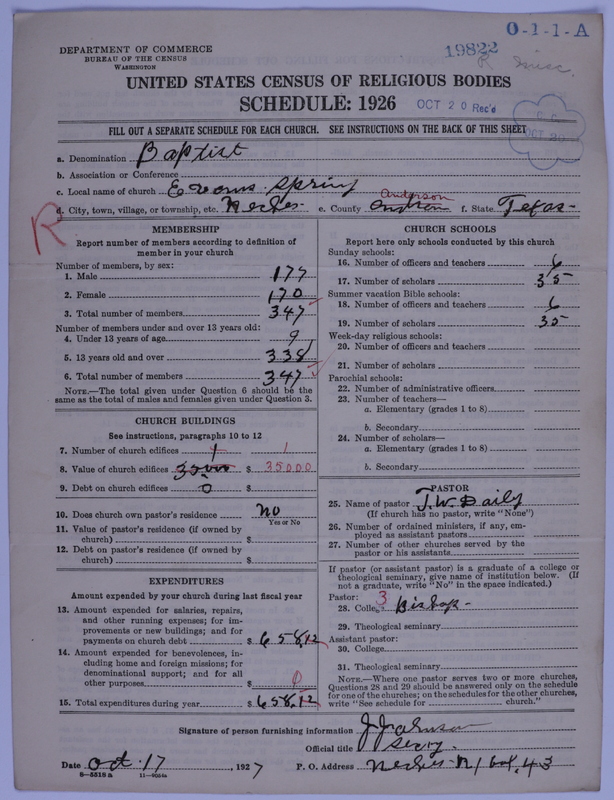 O-1-1-A
19822
DEPARTMENT OF COMMERCE
BUREAU OF THE CENSUS
WASHINGTON
R Misc.
UNITED STATES CENSUS OF RELIGIOUS BODIES
SCHEDULE: 1926
OCT 20 Rec'd
FILL OUT A SEPARATE SCHEDULE FOR EACH CHURCH. SEE INSTRUCTIONS ON THE BACK OF THIS SHEET
OCT 20
a. Denomination Baptist
b. Association or Conference
c. Local name of church Evans Spring
Anderson
d. City, town, village, or township, etc. Neches e. County f. State Texas-
R
MEMBERSHIP
Report number of members according to definition of
member in your church
Number of members, by sex:
1. Male 177
2. Female 170
3. Total number of members 347
Number of members under and over 13 years old:
4. Under 13 years of age 9
5. 13 years old and over 338
6. Total number of members 347
NOTE.—The total given under Question 6 should be the
same as the total of males and females given under Question 3.
CHURCH BUILDINGS
See instructions, paragraphs 10 to 12
7. Number of church edifices 1 1
8. Value of church edifices 35.000 $ 35000
9. Debt on church edifices 0 $
10. Does church own pastor's residence? No
Yes or No
11. Value of pastor's residence (if owned by
church) $
12. Debt on pastor's residence (if owned by
church) $
EXPENDITURES
Amount expended by your church during last fiscal year
13. Amount expended for salaries, repairs,
and other running expenses; for im-
provements or new buildings; and for
payments on church debt $ 658.12
14. Amount expended for benevolences, in-
cluding home and foreign missions; for
denominational support; and for all
other purposes $ 0
15. Total expenditures during year $ 658.12
CHURCH SCHOOLS
Report here only schools conducted by this church
Sunday schools:
16. Number of officers and teachers 6
17. Number of scholars 35
Summer vacation Bible schools:
18. Number of officers and teachers 6
19. Number of scholars 35
Week-day religious schools:
20. Number of officers and teachers
21. Number of scholars
Parochial schools:
22. Number of administrative officers
23. Number of teachers—
a. Elementary (grades 1 to 8)
b. Secondary
24. Number of scholars—
a. Elementary (grades 1 to 8)
b. Secondary
PASTOR
25. Name of pastor J.W. Daily
(If church has no pastor, write "None")
26. Number of ordained ministers, if any, em-
ployed as assistant pastors
27. Number of other churches served by the
pastor or his assistants
If pastor (or assistant pastor) is a graduate of a college or
theological seminary, give name of institution below. (If
not a graduate, write "No" in the space indicated.)
Pastor: 3
28. College Bishop-
29. Theological seminary
Assistant pastor:
30. College
31. Theological seminary
NOTE.—Where one pastor serves two or more churches,
Questions 28 and 29 should be answered only on the schedule
for one of the churches; on the schedules for the other churches,
write "See schedule for ______ church."
Signature of person furnishing information J Johnson
Official title Secry.
Date Oct 17, 1927 P. O. Address Neches R 1 box, 43
8—5518 a 11—9054a